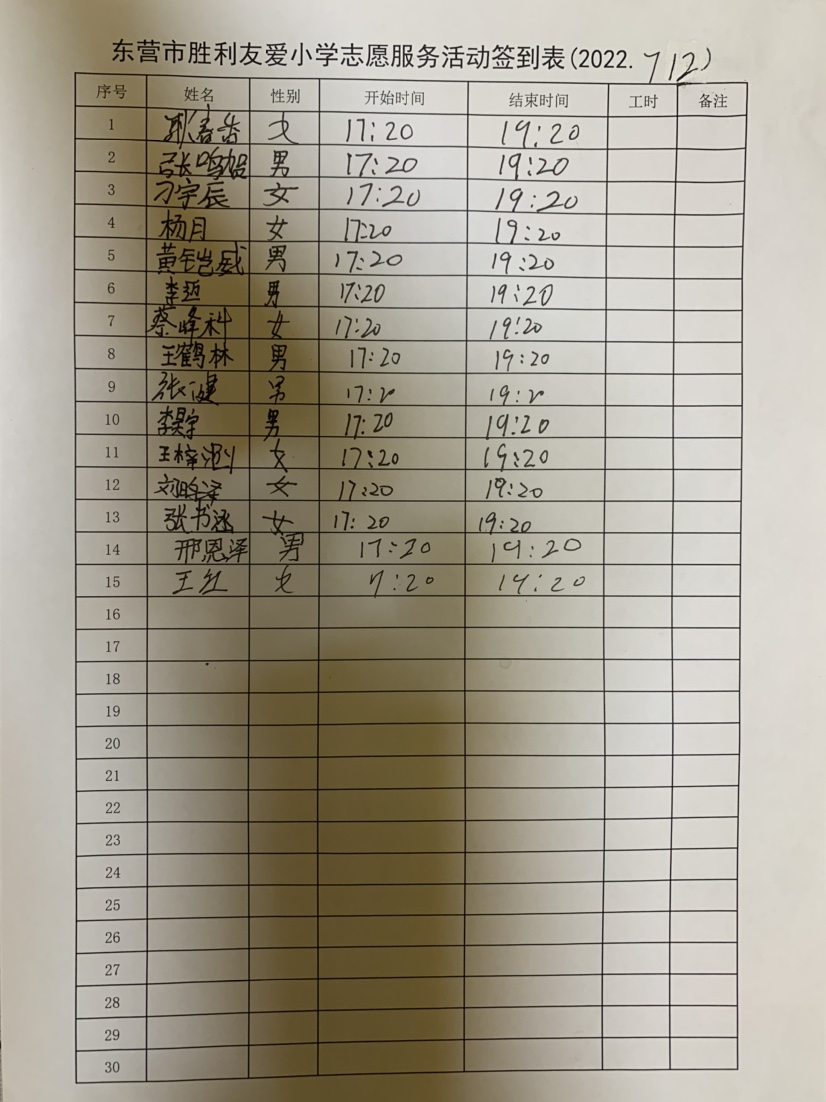 东营市胜利友爱小学志愿服务活动签到表(2022. 7 12)
序号 姓名 性别 开始时间 结束时间 工时 备注
1 女 17:20 19:20
2 张鸣 男 17:20 19:20
3 刁宇辰 女 17:20 19:20
4 杨月 女 17:20 19:20
5 黄铠威 男 17:20 19:20
6 李 男 17:20 19:20
7 蔡峰科 女 17:20 19:20
8 王鹤林 男 17:20 19:20
9 张健 男 17:2 19:2
10 李昊宇 男 17:20 19:20
11 王梓 女 17:20 19:20
12 刘晗泽 女 17:20 19:20
13 张书涵 女 17:20 19:20
14 邢恩泽 男 17:20 19:20
15 王红 女 17:20 19:20
16
17
18
19
20
21
22
23
24
25
26
27
28
29
30